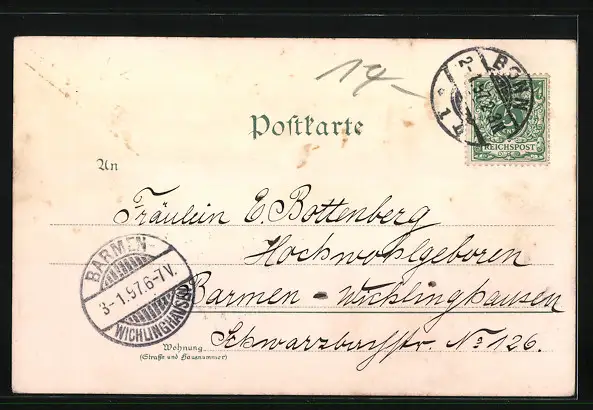 14
Postkarte
BONN
1
REICHSPOST
An
Fräulein E. Bottenberg
Hochwohlgeboren
Barmen - Wichlinghausen
Schwarzbachstr. No 126.
BARMEN
3-1.97.6-7V.
WICHLINGHAUSEN
Wohnung
(Straße und Hausnummer)